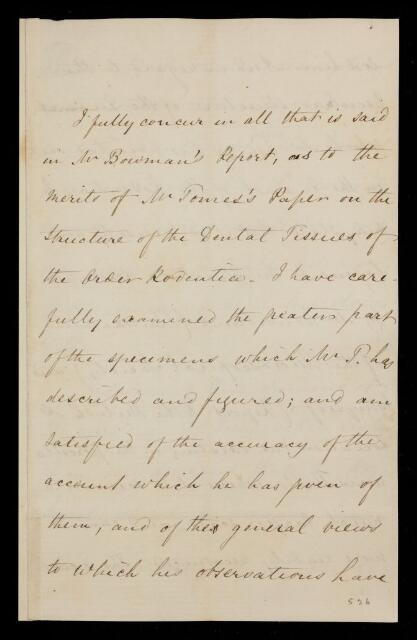 I fully concur in all that is said
in Mr Bowman's Report, as to the
merits of Mr Tomes's Paper on the
Structure of the Dental Tissues of
the Order Rodentia. I have care-
fully examined the greater part
of the specimens which Mr T. has
described and figured; and am
satisfied of the accuracy of the
account which he has given of
them, and of the general views
to which his observations have
526